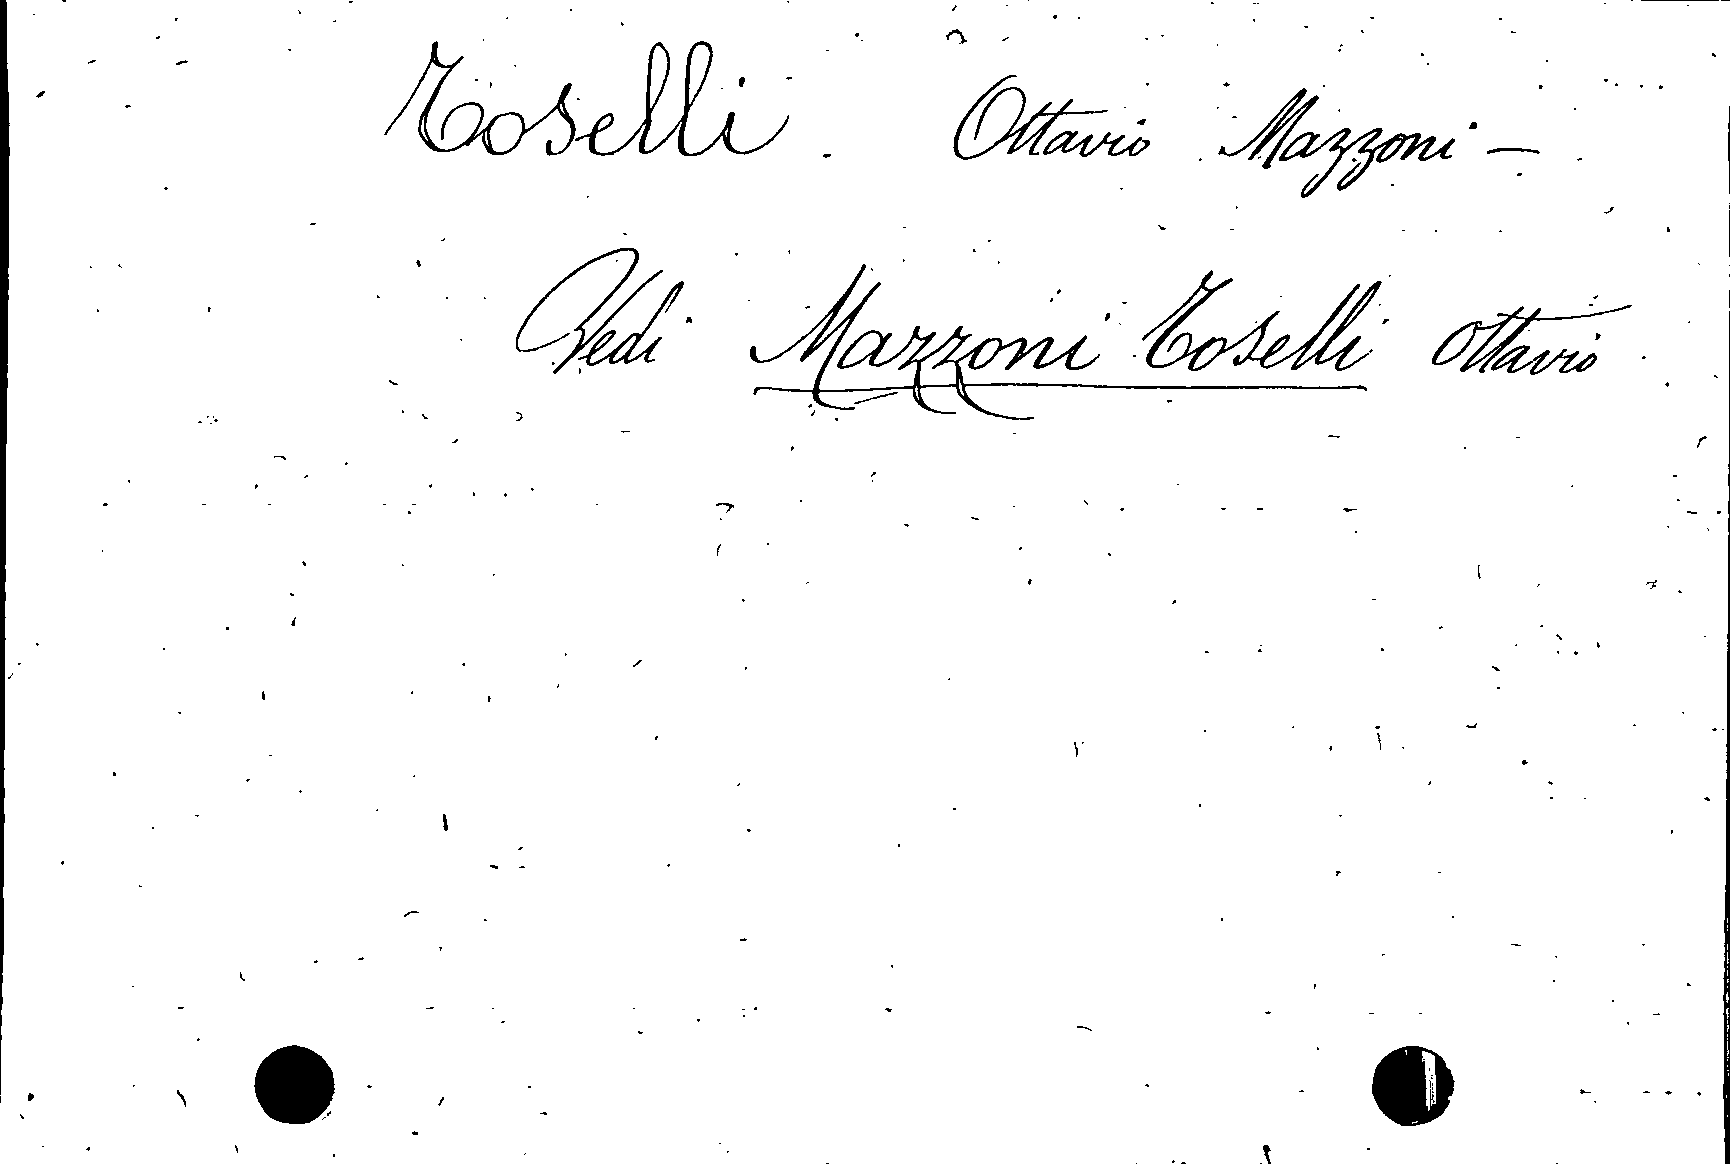 Toselli. Ottavio Mazzoni —
Vedi Mazzoni Toselli Ottavio